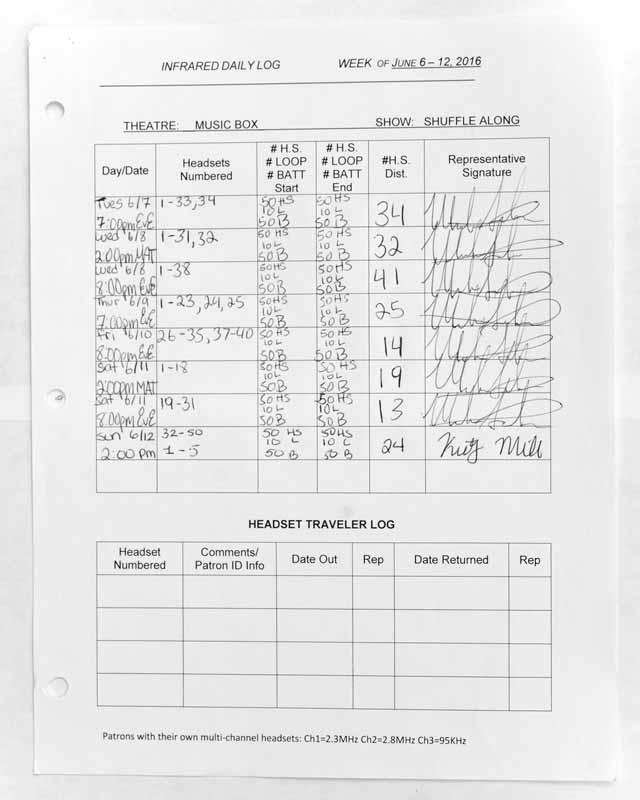 INFRARED DAILY LOG WEEK OF JUNE 6 – 12, 2016
THEATRE: MUSIC BOX SHOW: SHUFFLE ALONG
Day/Date
Headsets
Numbered
# H.S.
# LOOP
# BATT
Start
# H.S.
# LOOP
# BATT
End
#H.S.
Dist.
Representative
Signature
Tues 6/7
7:00pm EvE
1-33,34
50HS
10L
50B
50HS
10L
50B
34
Wed 6/8
2:00pm MAT
1-31,32
50HS
10L
50B
50HS
10L
50B
32
Wed 6/8
8:00pm EvE
1-38
50HS
10L
50B
50HS
10L
50B
41
Thur 6/9
7:00pm EvE
1-23,24,25
50HS
10L
50B
50HS
10L
50B
25
Fri 6/10
8:00pm EvE
26-35,37-40
50HS
10L
50B
50HS
10L
50B
14
Sat 6/11
2:00pm MAT
1-18
50HS
10L
50B
50HS
10L
50B
19
Sat 6/11
8:00pm EvE
19-31
50HS
10L
50B
50HS
10L
50B
13
Sun 6/12
2:00 Pm
32-50
1-5
50 HS
10 L
50 B
50HS
10 L
50 B
24
HEADSET TRAVELER LOG
Headset
Numbered
Comments/
Patron ID Info
Date Out
Rep
Date Returned
Rep
Patrons with their own multi-channel headsets: Ch1=2.3MHz Ch2=2.8MHz Ch3=95KHz